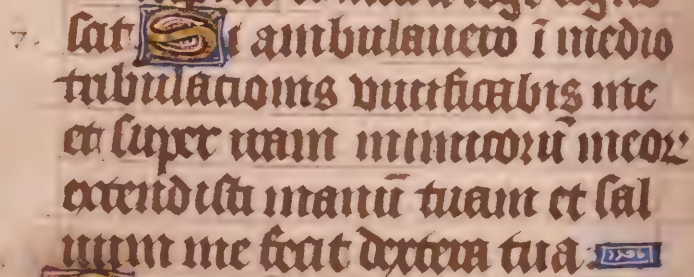 scit Si ambulauero ī medio
tribulationis viuificabis me
et super iram inimicorū meoꝝ
extendisti manū tuam et sal
uum me fecit dextera tua